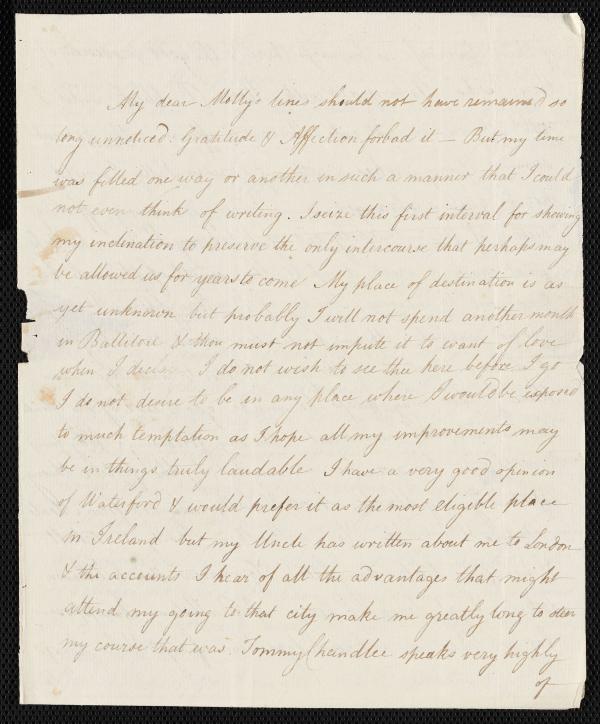 My dear Molly's lines should not have remained so
long unnoticed: Gratitude & Affection forbad it — But my time
was filled one way or another in such a manner that I could
not even think of writing. I seize this first interval for shewing
my inclination to preserve the only intercourse that perhaps may
be allowed us for years to come My place of destination is as
yet unknown but probably I will not spend another month
in Ballitore & thou must not impute it to want of love
when I I do not wish to see thee here before I go
I do not desire to be in any place where I would be exposed
to much temptation as I hope all my improvements may
be in things truly laudable I have a very good opinion
of Waterford & would prefer it as the most eligible place
in Ireland but my Uncle has written about me to London
& the accounts I hear of all the advantages that might
attend my going to that city make me greatly long to steer
my course that was. Tommy Chandlee speaks very highly
of